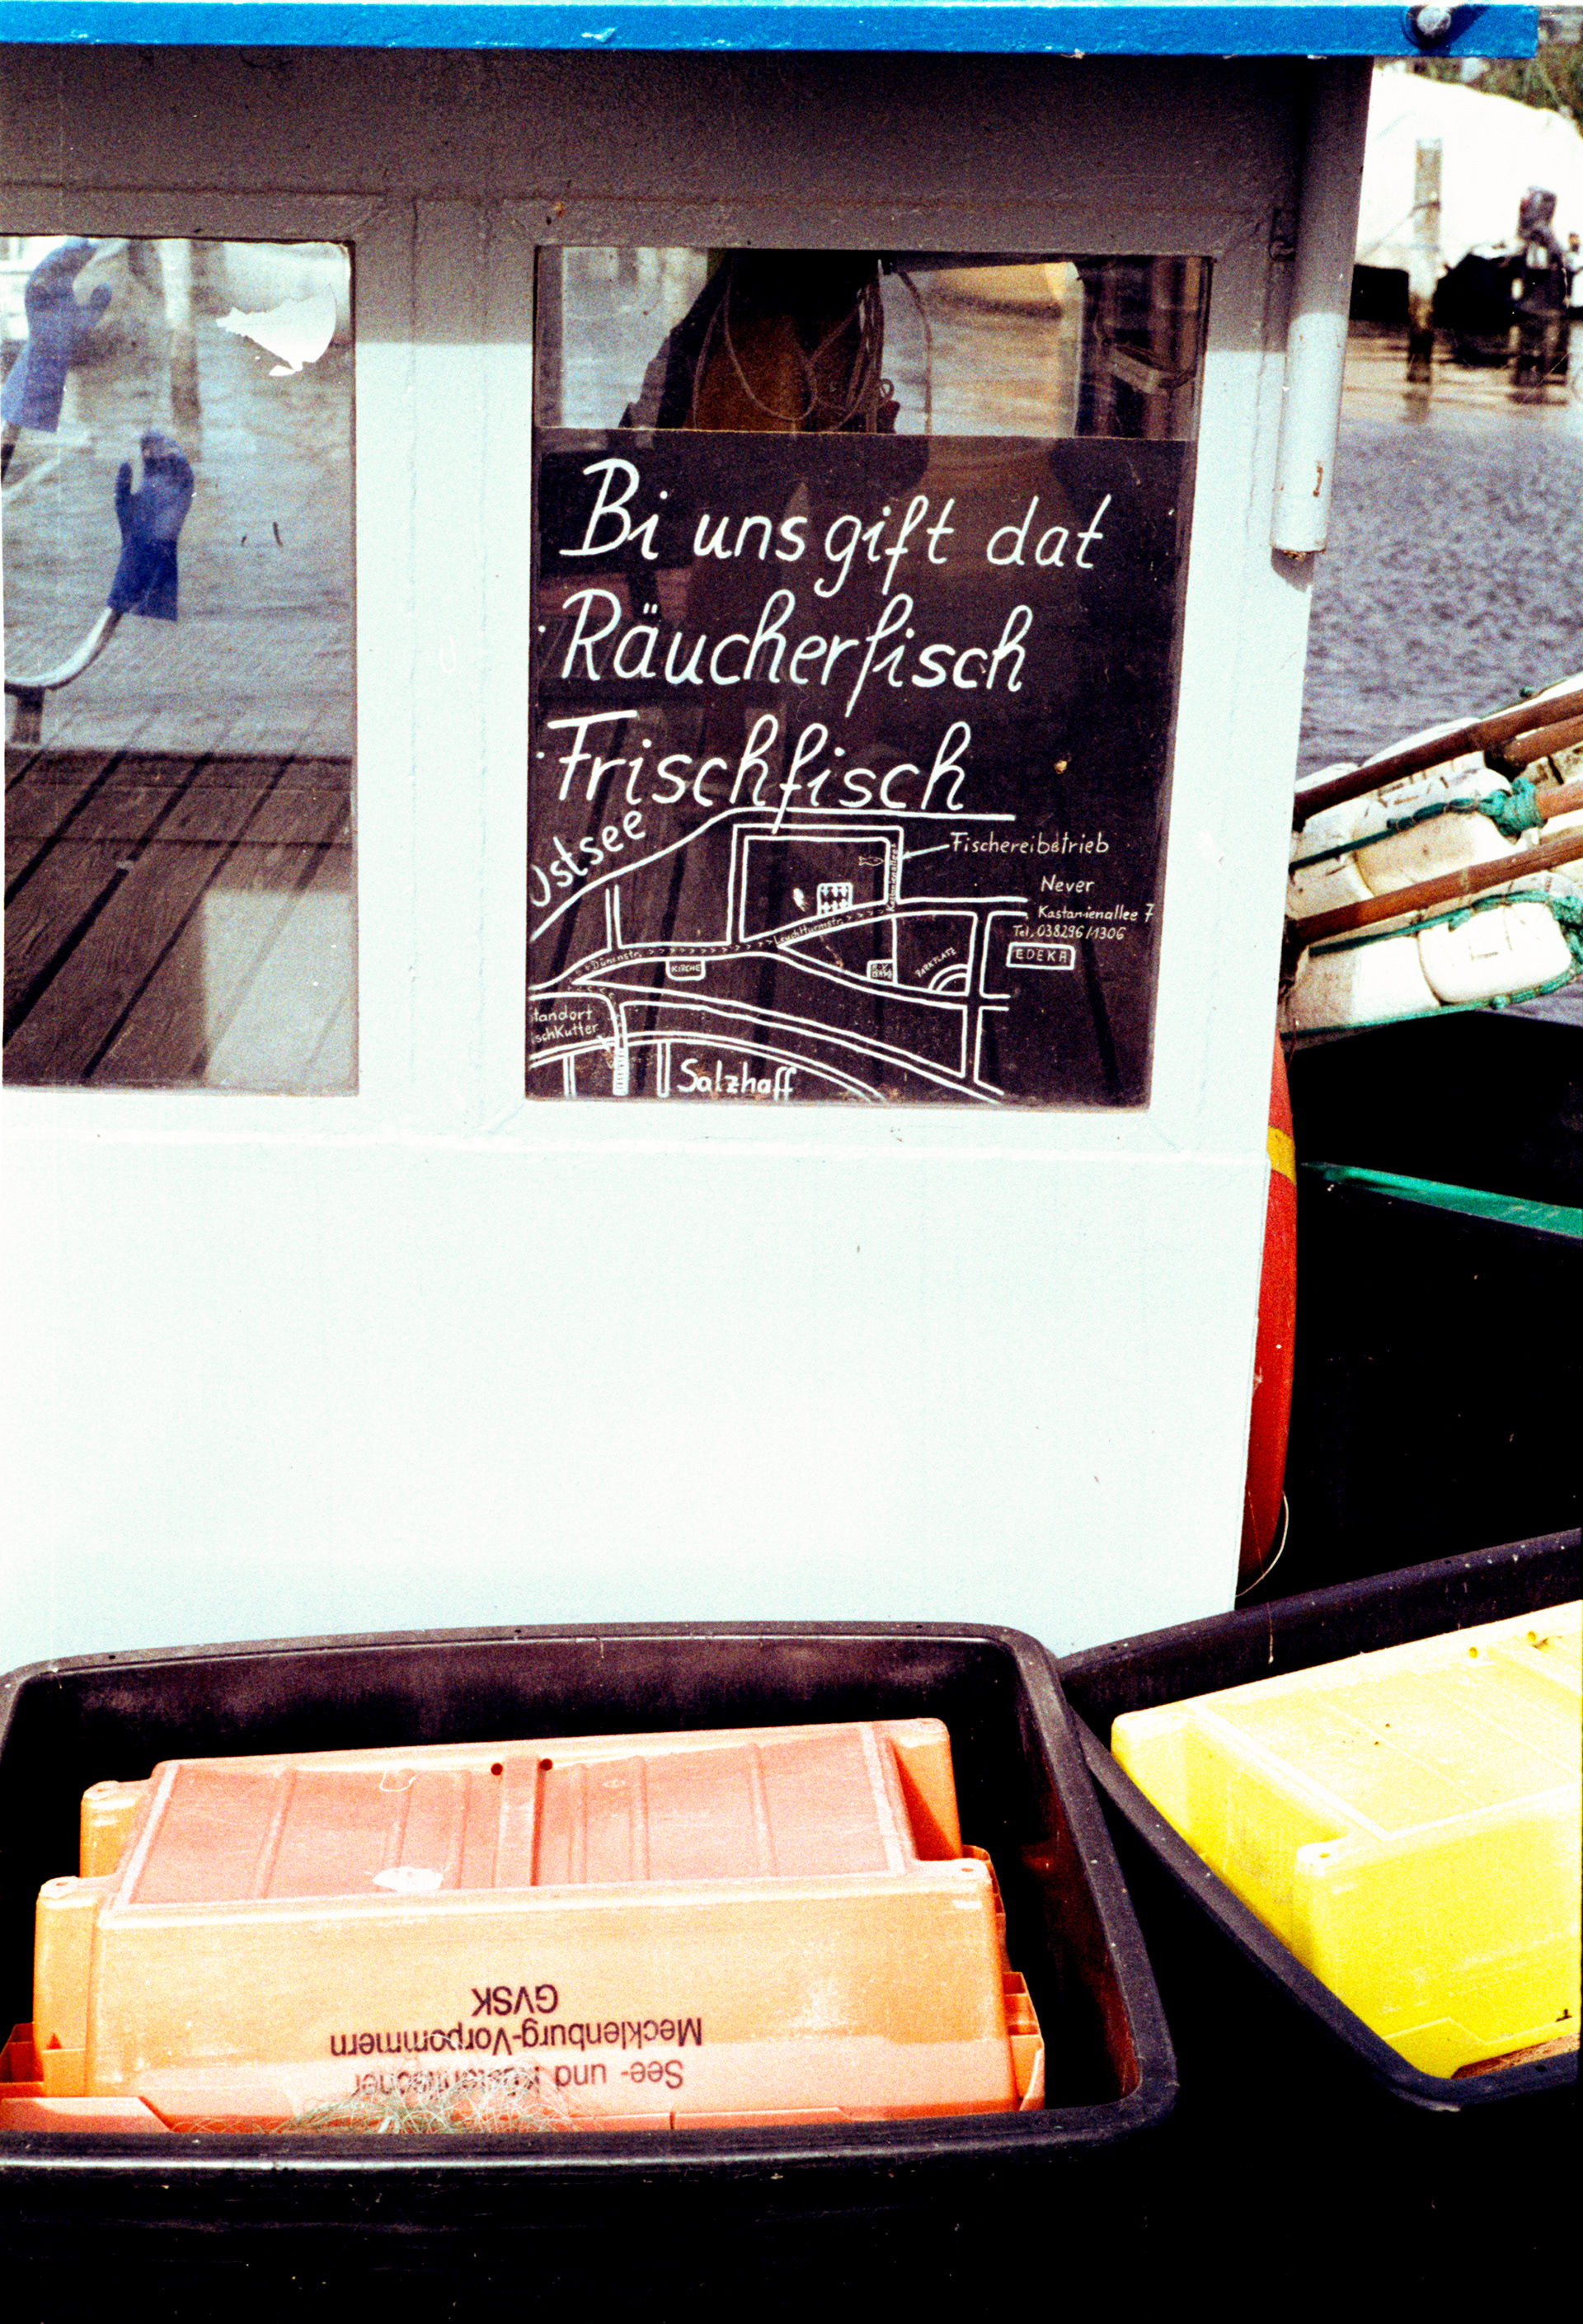 Bi uns gift dat
Räucherfisch
Frischfisch
Ostsee
Fischereibetrieb
Never
Kastanienallee 7
Tel. 038296/1306
EDEKA
Kastanienallee
Leuchtturmstr.
Dünenstr.
KIRCHE
PARKPLATZ
Standort
FischKutter
Salzhaff
See- und Küstenfischer
Mecklenburg-Vorpommern
GVSK